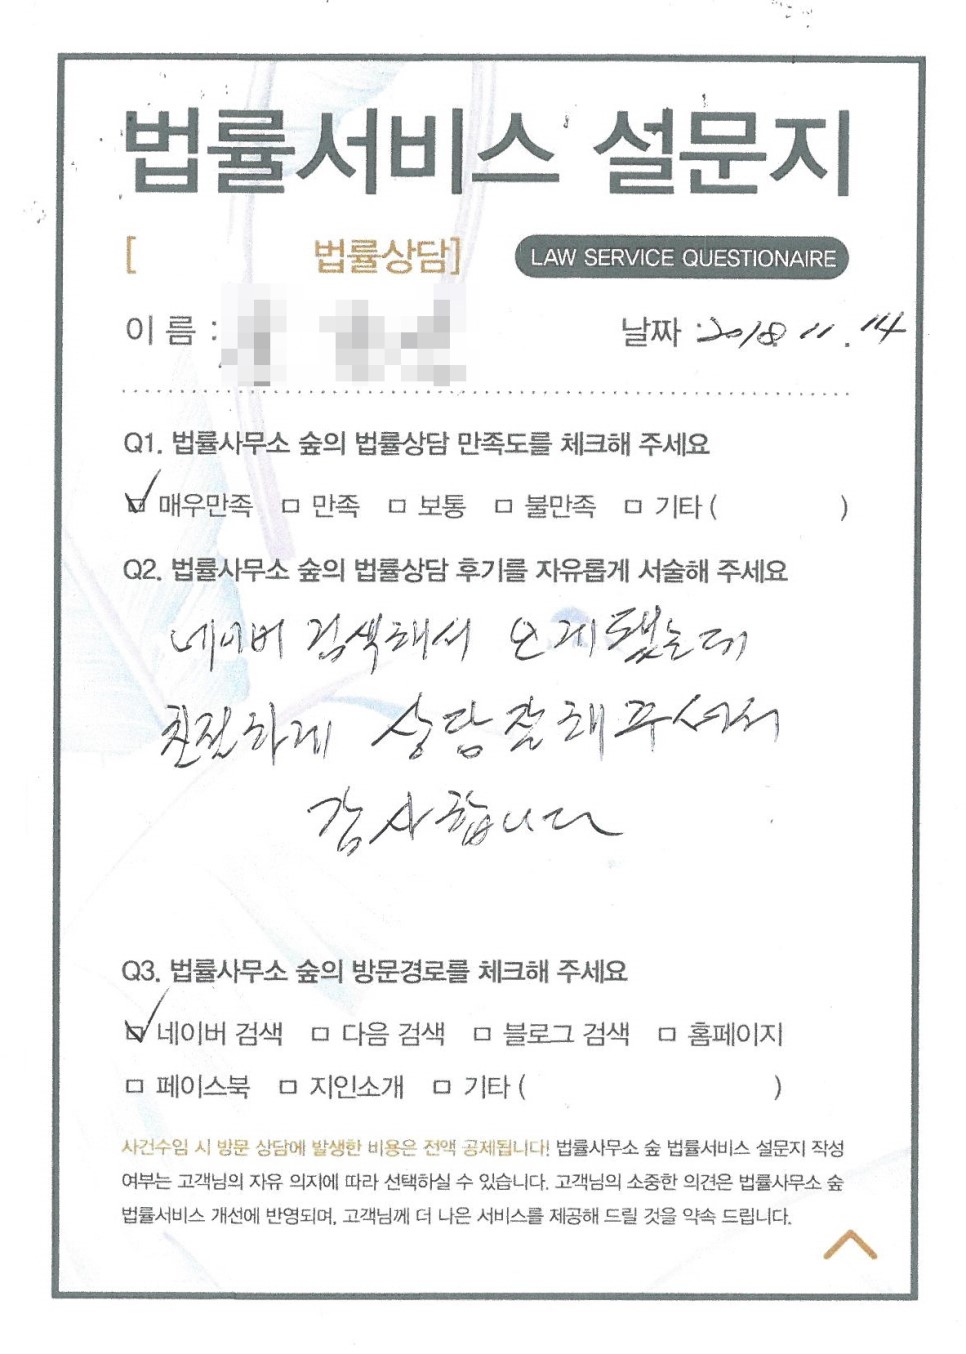 법률서비스 설문지
[ 법률상담] LAW SERVICE QUESTIONAIRE
이 름 : 날짜 : 2018. 11. 14
Q1. 법률사무소 숲의 법률상담 만족도를 체크해 주세요
☑ 매우만족 □ 만족 □ 보통 □ 불만족 □ 기타 ( )
Q2. 법률사무소 숲의 법률상담 후기를 자유롭게 서술해 주세요
네이버 검색해서 오게됐는데
친절하게 상담잘해주셔서
감사합니다
Q3. 법률사무소 숲의 방문경로를 체크해 주세요
☑ 네이버 검색 □ 다음 검색 □ 블로그 검색 □ 홈페이지
□ 페이스북 □ 지인소개 □ 기타 ( )
사건수임 시 방문 상담에 발생한 비용은 전액 공제됩니다! 법률사무소 숲 법률서비스 설문지 작성
여부는 고객님의 자유 의지에 따라 선택하실 수 있습니다. 고객님의 소중한 의견은 법률사무소 숲
법률서비스 개선에 반영되며, 고객님께 더 나은 서비스를 제공해 드릴 것을 약속 드립니다.